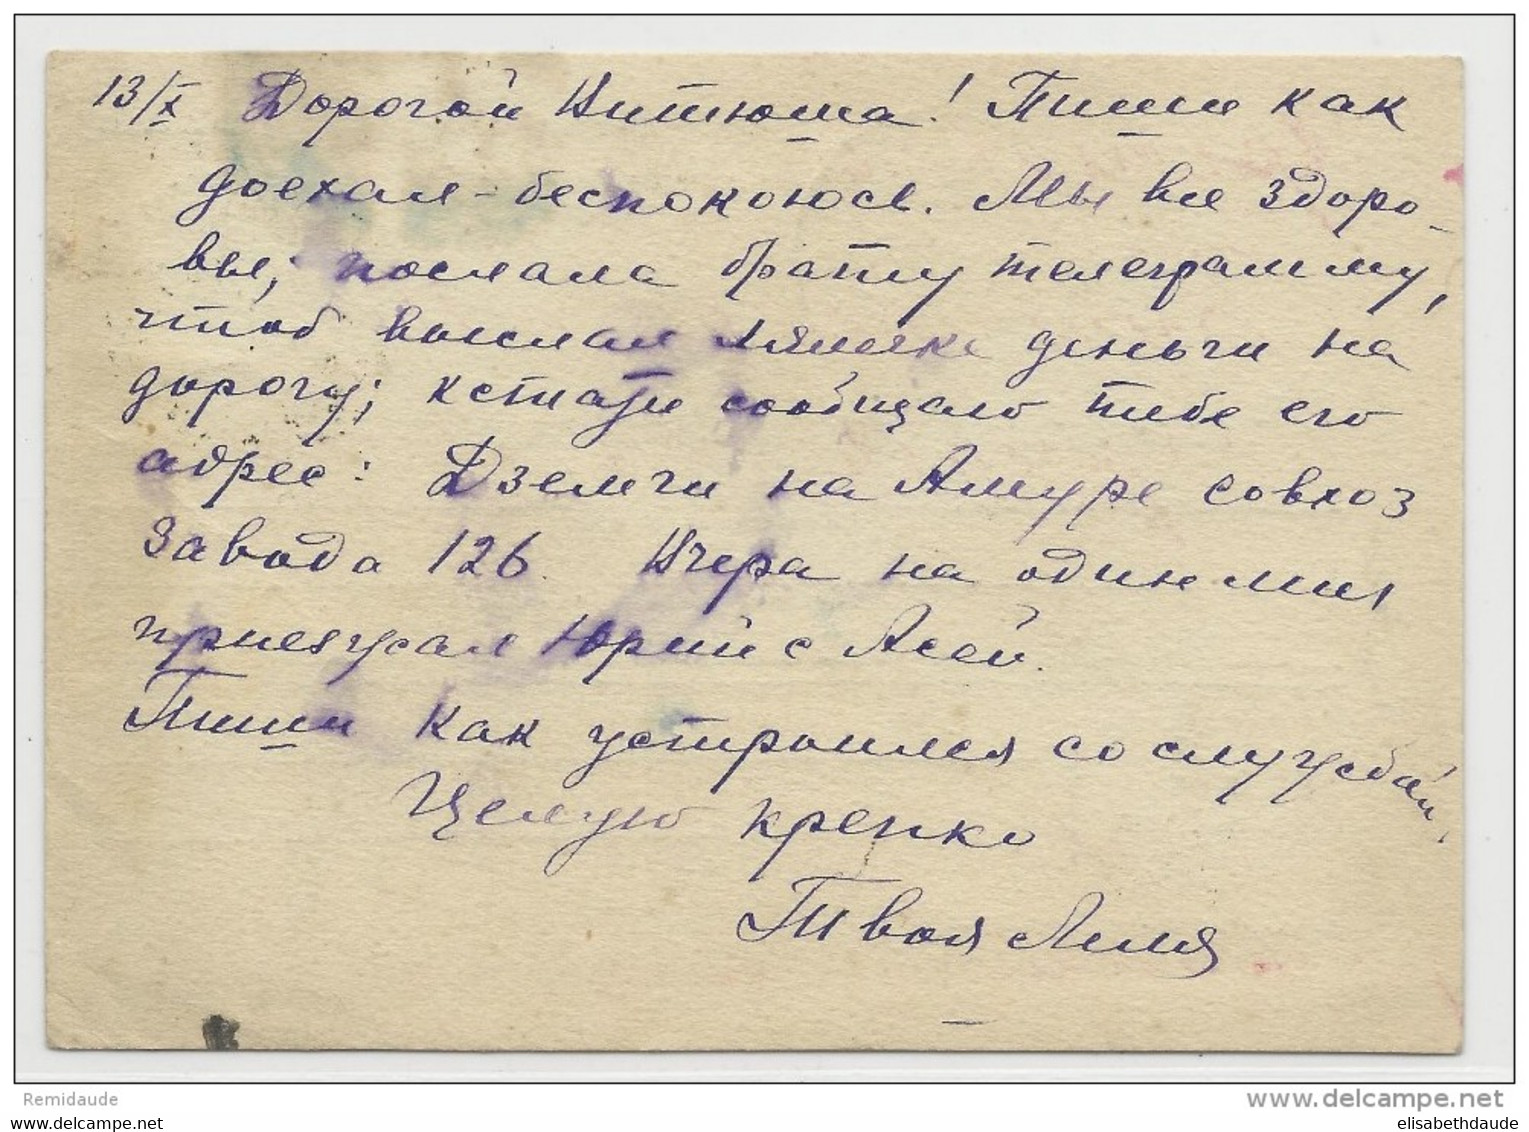 13/X Дорогой Витюша! Пиши как
доехал - беспокоюсь. Мы все здоро-
вы; послала брату телеграмму,
чтоб выслал деньги на
дорогу; кстати сообщаю тебе его
адрес: Дземги на Амуре совхоз
завода 126. Вчера на один миг
приезжал Юрий с Асей.
Пиши как устроился со службой.
Целую крепко
Твоя Лиля
Remidaude
www.delcampe.net
www.delcampe.net
elisabethdaude